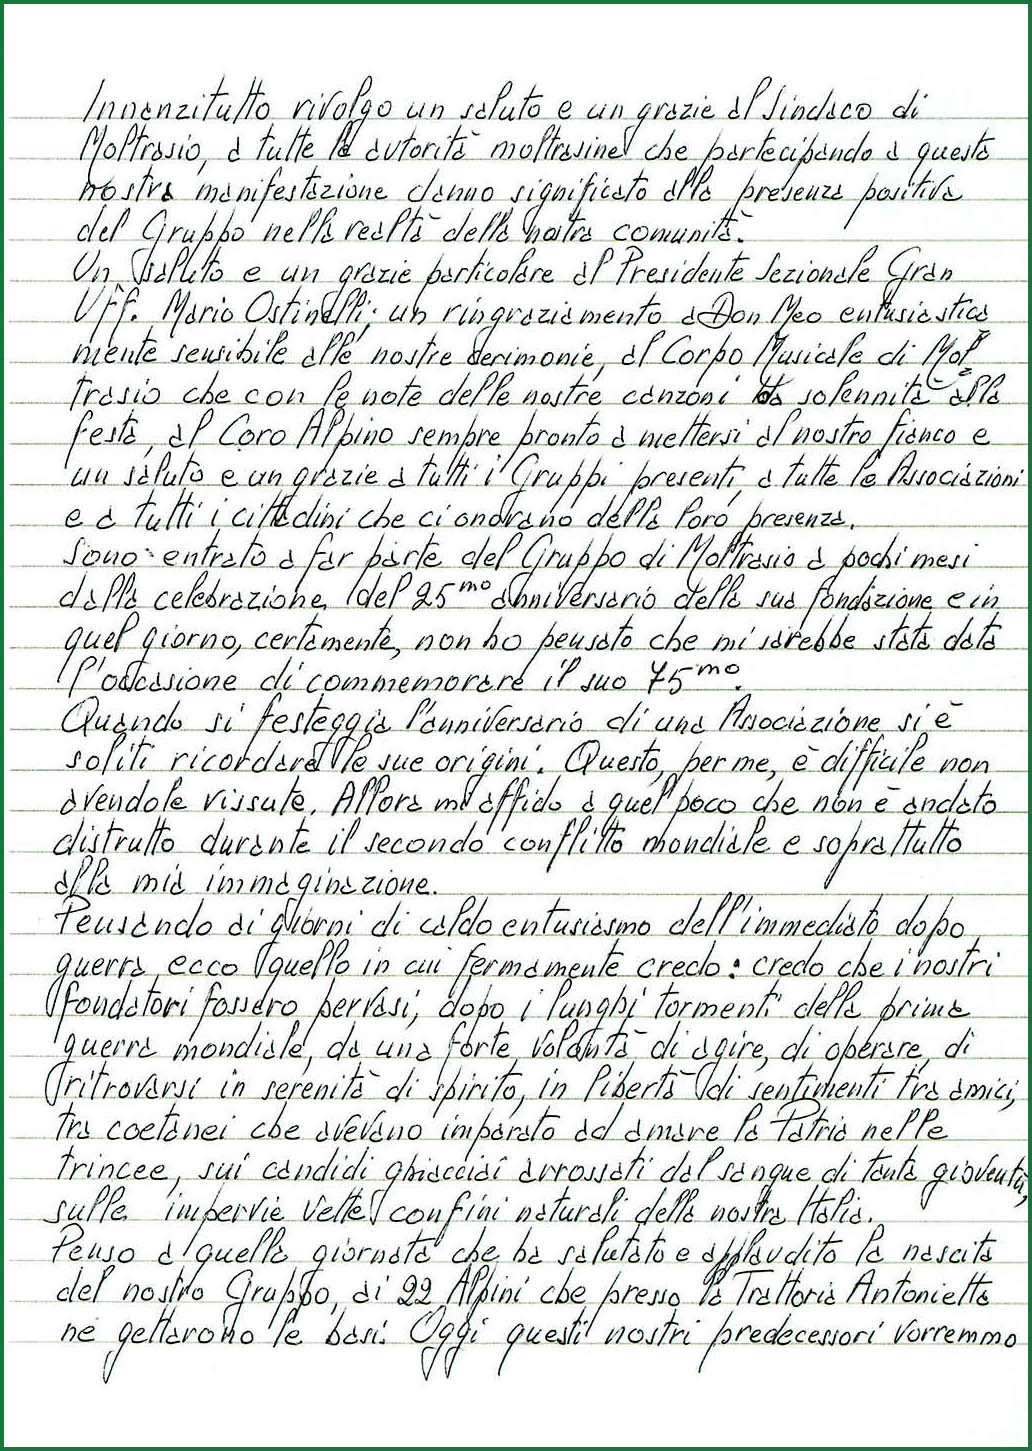 Innanzitutto rivolgo un saluto e un grazie al Sindaco di
Moltrasio, a tutte le autorità moltrasine che partecipando a questa
nostra manifestazione danno significato alla presenza positiva
del Gruppo nella realtà della nostra comunità.
Un saluto e un grazie particolare al Presidente Sezionale Gran
Uff. Mario Ostinelli; un ringraziamento a Don Meo entusiastica
mente sensibile alle nostre cerimonie, al Corpo Musicale di Mol=
trasio che con le note delle nostre canzoni dà solennità alla
festa, al Coro Alpino sempre pronto a mettersi al nostro fianco e
un saluto e un grazie a tutti i Gruppi presenti, a tutte le Associazioni
e a tutti i cittadini che ci onorano della loro presenza.
Sono entrato a far parte del Gruppo di Moltrasio a pochi mesi
dalla celebrazione del 25mo anniversario della sua fondazione e in
quel giorno, certamente, non ho pensato che mi sarebbe stata data
l'occasione di commemorare il suo 75mo.
Quando si festeggia l'anniversario di una Associazione si è
soliti ricordare le sue origini. Questo, per me, è difficile non
avendole vissute. Allora mi affido a quel poco che non è andato
distrutto durante il secondo conflitto mondiale e soprattutto
alla mia immaginazione.
Pensando ai giorni di caldo entusiasmo dell'immediato dopo
guerra, ecco quello in cui fermamente credo: credo che i nostri
fondatori fossero pervasi, dopo i lunghi tormenti della prima
guerra mondiale, da una forte volontà di agire, di operare, di
ritrovarsi in serenità di spirito, in libertà di sentimenti tra amici,
tra coetanei che avevano imparato ad amare la Patria nelle
trincee, sui candidi ghiacciai arrossati dal sangue di tanta gioventù,
sulle impervie vette confini naturali della nostra Italia.
Penso a quella giornata che ha salutato e applaudito la nascita
del nostro Gruppo, ai 22 Alpini che presso la Trattoria Antonietta
ne gettarono le basi. Oggi questi nostri predecessori vorremmo